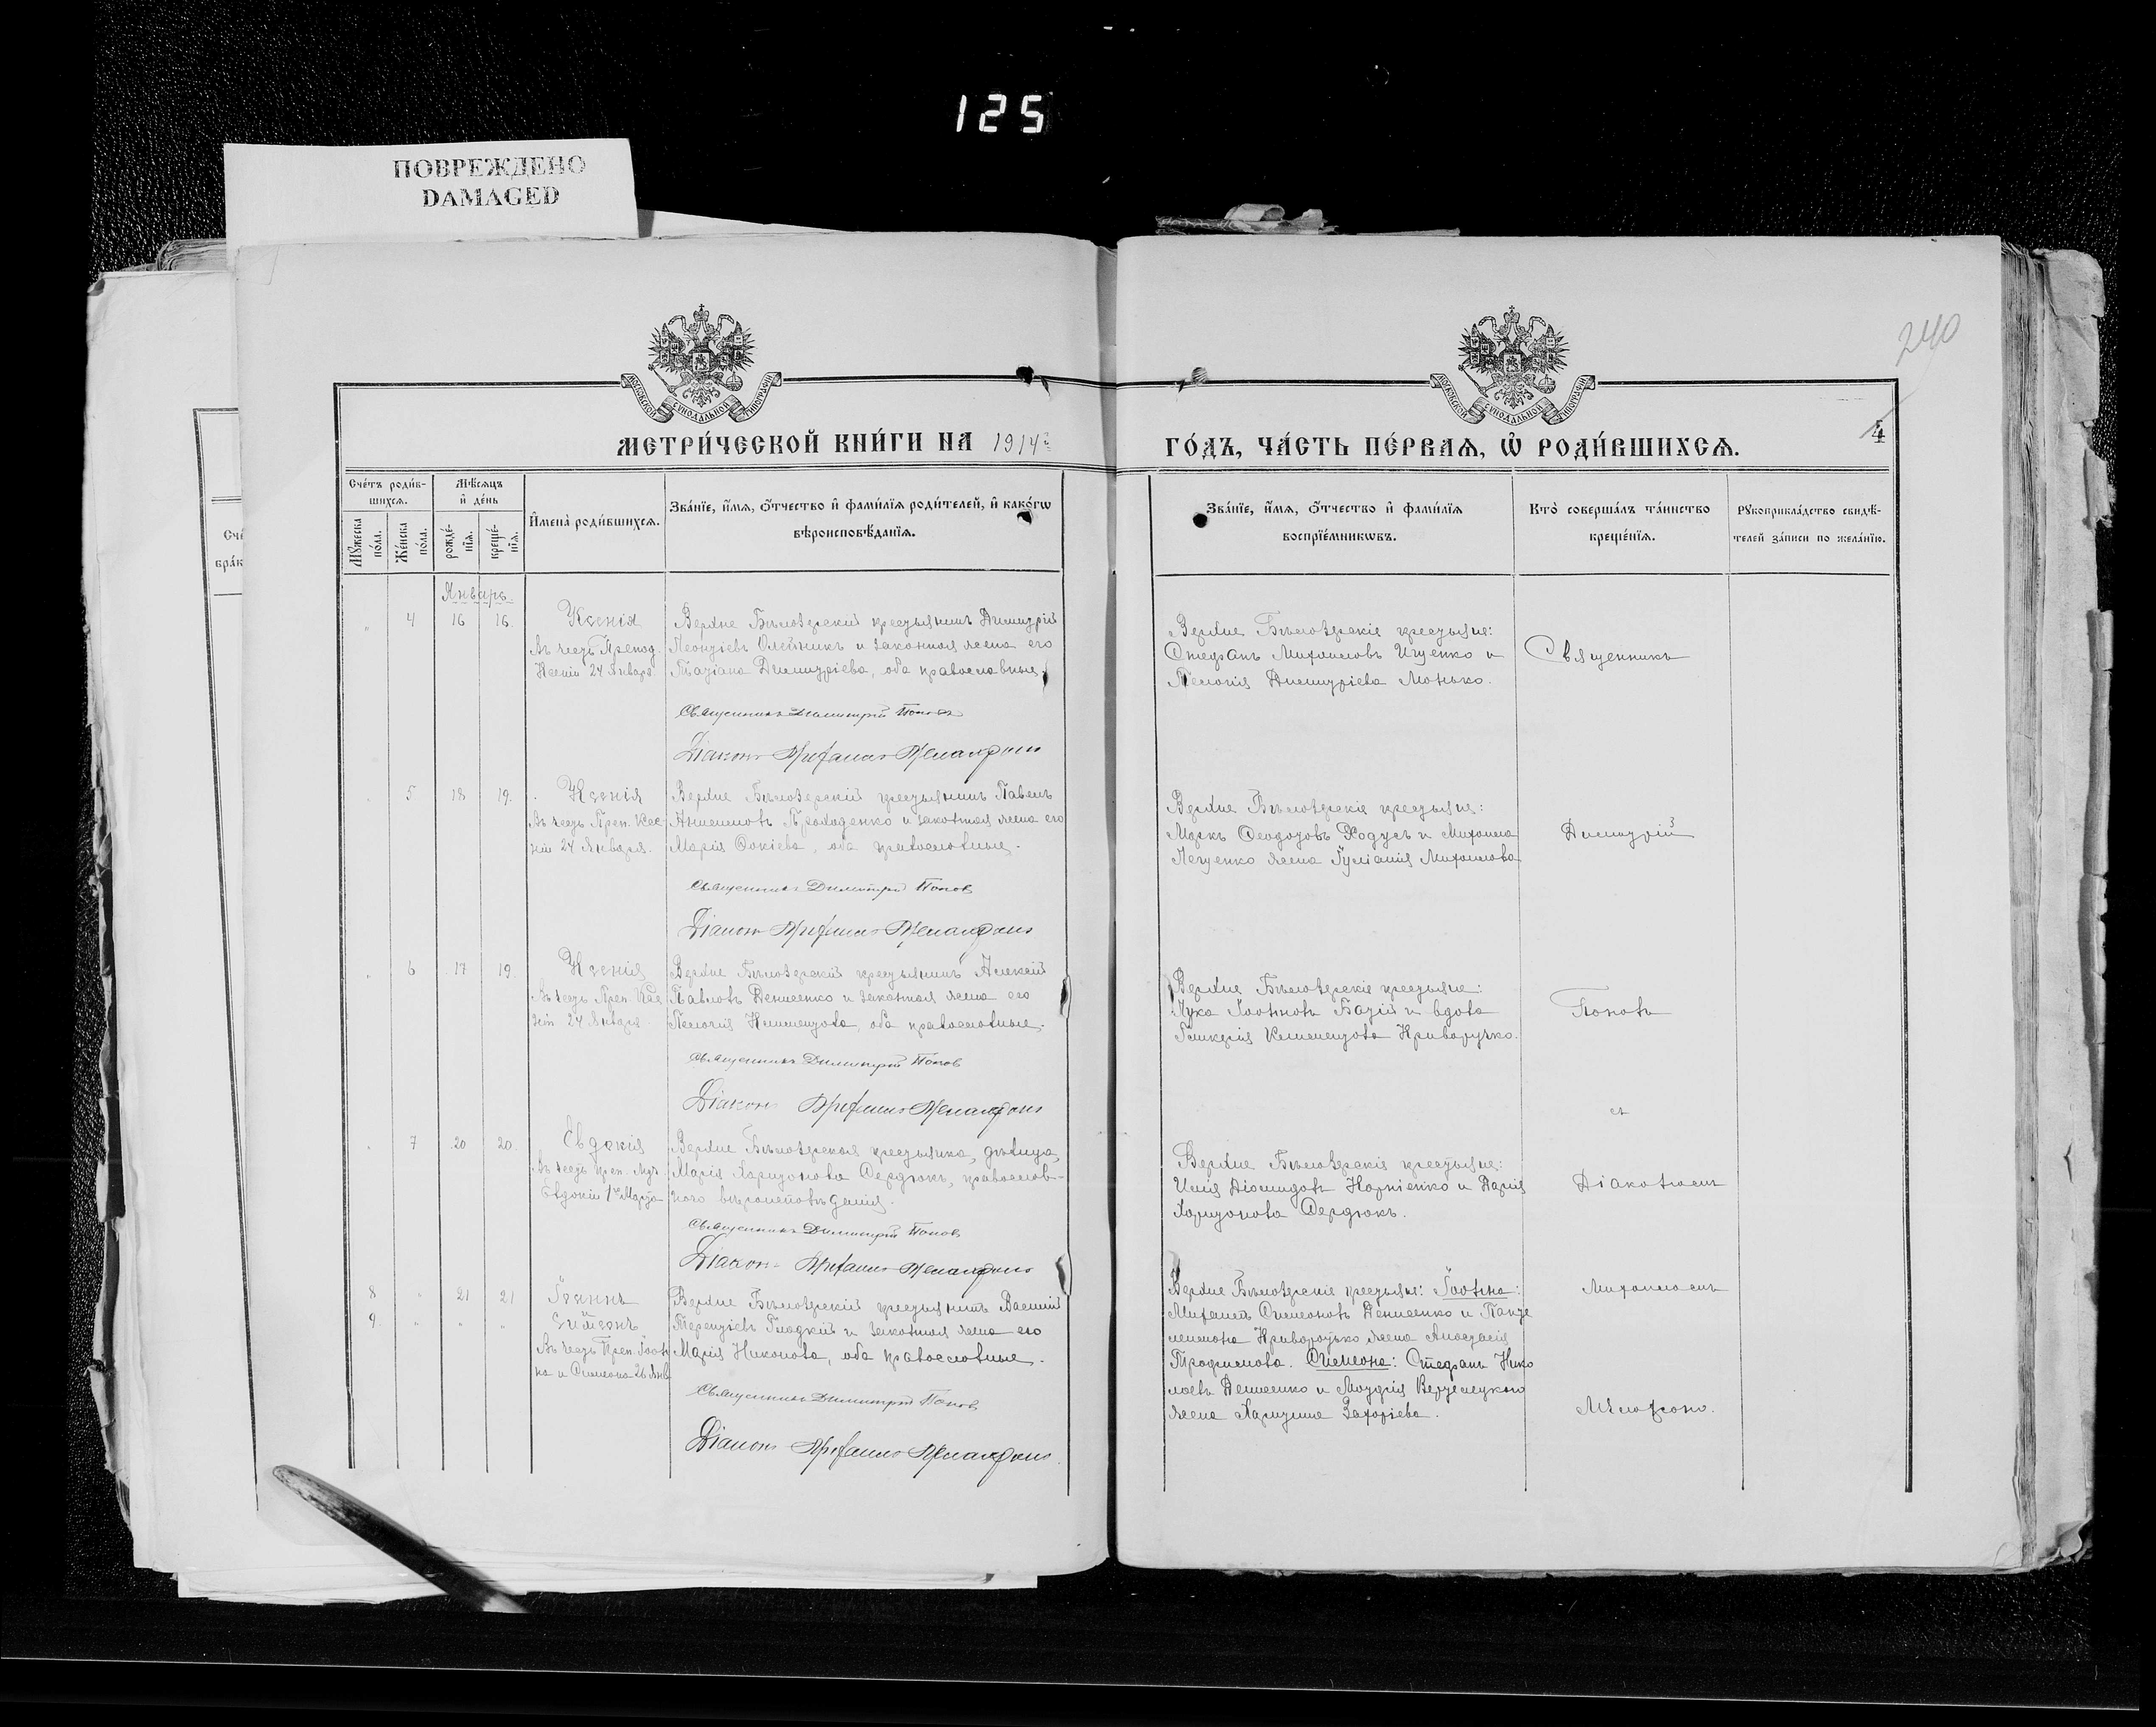 125
ПОВРЕЖДЕНО
DAMAGED
240
4
МОСКОВСКОЙ СѴНОДАЛЬНОЙ ТИПОГРАФІИ
МОСКОВСКОЙ СѴНОДАЛЬНОЙ ТИПОГРАФІИ
МЕТРИ́ЧЕСКОЙ КНИ́ГИ НА 1914 г.
ГО́ДЪ, ЧА́СТЬ ПЕ́РВАѦ, Ѡ҆ РОДИ́ВШИХСѦ.
Сче́тъ роди́в-
шихсѧ.
Мꙋ́жеска по́ла.
Же́нска по́ла.
Мѣ́сѧцъ
и҆ де́нь
рожде́-
нїѧ.
креще́-
нїѧ.
И҆мена̀ роди́вшихсѧ.
Зва́нїе, и҆́мѧ, ѻ҆́тчество и҆ фами́лїѧ роди́телей, и҆ како́гѡ
вѣроисповѣ́данїѧ.
Зва́нїе, и҆́мѧ, ѻ҆́тчество и҆ фами́лїѧ
воспрїе́мникѡвъ.
Кто̀ соверша́лъ та́инство
креще́нїѧ.
Рꙋкоприкла́дство свидѣ́-
телей за́писи по жела́нїю.
Январь.
" 4 16 16.
Ксенія
Въ честь Препод.
Ксеніи 24 Января
Верхне Бѣлозерскій крестьянинъ Димитрій
Леонтіевъ Олейникъ и законная жена его
Татіана Димитріева, оба православные.
Священникъ Димитрій Попов
Діаконъ
Верхне Бѣлозерскіе крестьяне:
Стефанъ Михаиловъ Ищенко и
Пелагія Димитріева Монько.
Священникъ
" 5 18 19.
Ксенія
Въ честь Преп. Ксе-
ніи 24 Января.
Верхне Бѣлозерскій крестьянинъ Павелъ
и законная жена его
Марія Фокіева, оба православные.
Священникъ Димитрій Попов
Діаконъ
Верхне Бѣлозерскіе крестьяне:
Маркъ Ходусъ и Михаила
жена Іуліанія Михаилова
Димитрій
" 6 17 19.
Ксенія
Въ честь Преп. Ксе
ніи 24 Января.
Верхне Бѣлозерскій крестьянинъ Алексій
Павловъ Денисенко и законная жена его
Пелагія Климентова, оба православные.
Священникъ Димитрій Попов
Діаконъ
Верхне Бѣлозерскіе крестьяне:
Лука Іоанновъ и вдова
Гликерія Климентова Криворучко.
Поповъ
съ
" 7 20 20.
Евдокія
Въ честь преп. муч.
Евдокіи 1го Марта
Верхне Бѣлозерская крестьянка, дѣвица,
Марія Харитонова Сердюкъ, православ-
наго вѣроисповѣданія.
Священникъ Димитрій Попов
Діаконъ
Верхне Бѣлозерскіе крестьяне:
Илія Діомидовъ Корніенко и Дарія
Харитонова Сердюкъ.
Діакономъ
8 " 21 21
Іоаннъ
9. " " "
и
Симеонъ
Въ честь Преп. Іоан
на и Симеона 26 Янв.
Верхне Бѣлозерскій крестьянинъ Василій
Терентіевъ Гладкій и законная жена его
Марія Никонова, оба православные.
Священникъ Димитрій Попов
Діаконъ
Верхне Бѣлозерскіе крестьяне: Іоанна:
Михаилъ Симеоновъ Денисенко и Панте
леимона Криворотько жена Анастасія
Трофимова. Симеона: Стефанъ Нико
лаевъ Денисенко и
жена Харитина Захаріева.
Михаиломъ